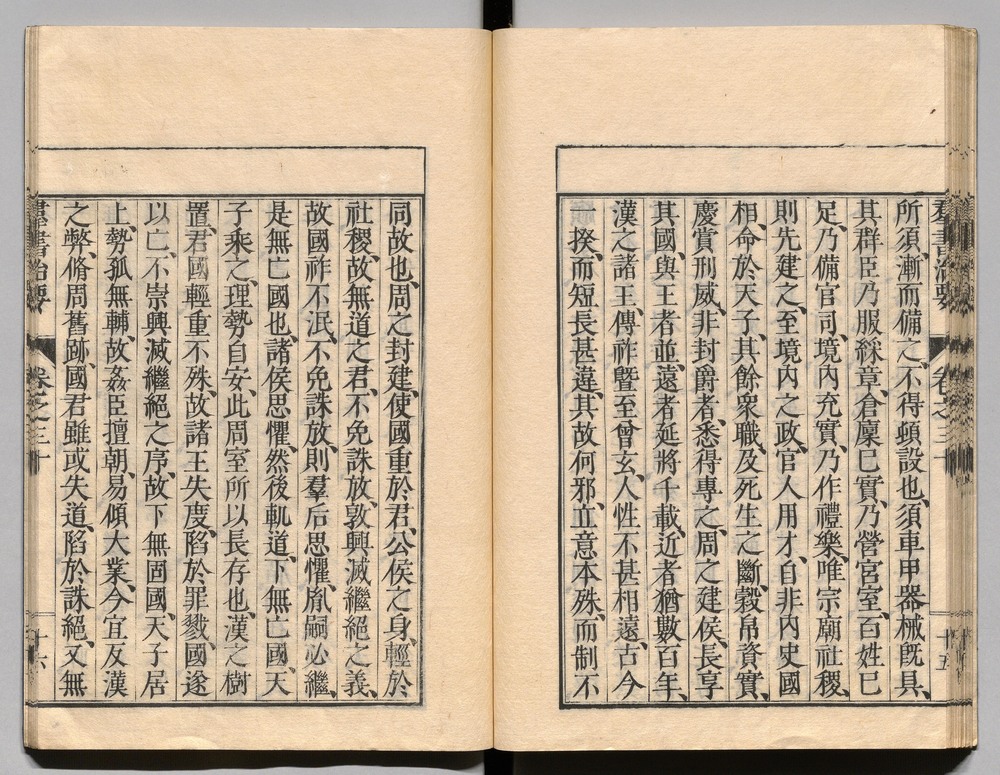 羣書治要 卷之三十 十五
所須、漸而備之、不得頓設也、須車甲器械旣具、
其群臣乃服綵章、倉廩已實、乃營宮室、百姓已
足、乃備官司、境內充實、乃作禮樂、唯宗廟社稷、
則先建之、至境內之政、官人用才、自非內史國
相、命於天子、其餘衆職、及死生之斷、穀帛資實、
慶賞刑威、非封爵者、悉得專之、周之建侯、長享
其國、與王者並、遠者延將千載、近者猶數百年、
漢之諸王、傳祚曁至曾玄、人性不甚相遠、古今
一揆、而短長甚違、其故何邪、立意本殊、而制不
同故也、周之封建、使國重於君、公侯之身、輕於
社稷、故無道之君、不免誅放、敦興滅繼絕之義、
故國祚不泯、不免誅放、則羣后思懼、胤嗣必繼、
是無亡國也、諸侯思懼、然後軌道、下無亡國、天
子乘之、理勢自安、此周室所以長存也、漢之樹
置、君國輕重不殊、故諸王失度、陷於罪戮、國遂
以亡、不崇興滅繼絕之序、故下無固國、天子居
上、勢孤無輔、故姦臣擅朝、易傾大業、今宜反漢
之弊、脩周舊跡、國君雖或失道、陷於誅絕、又無
羣書治要 卷之三十 十六